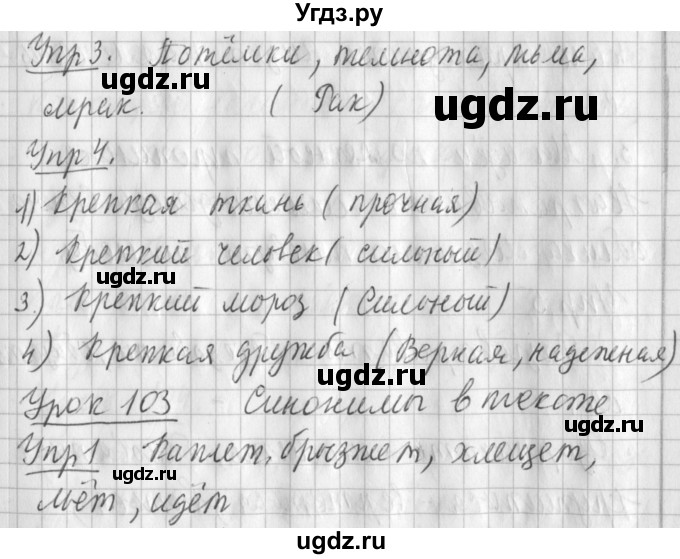 Угдз.ру
Упр 3. Потёмки, темнота, тьма,
ugdz.ru ugdz.ru
мрак. (Рак)
Упр 4.
ugdz.ru
1) Крепкая ткань (прочная)
2) Крепкий человек (сильный)
ugdz.ru ugdz.ru
3) Крепкий мороз (Сильный)
4) Крепкая дружба (Верная, надежная)
ugdz.ru
Урок 103 Синонимы в тексте
ugdz.ru
Упр 1 Каплет, брызжет, хлещет,
ugdz.ru
льёт, идёт
ugdz.ru